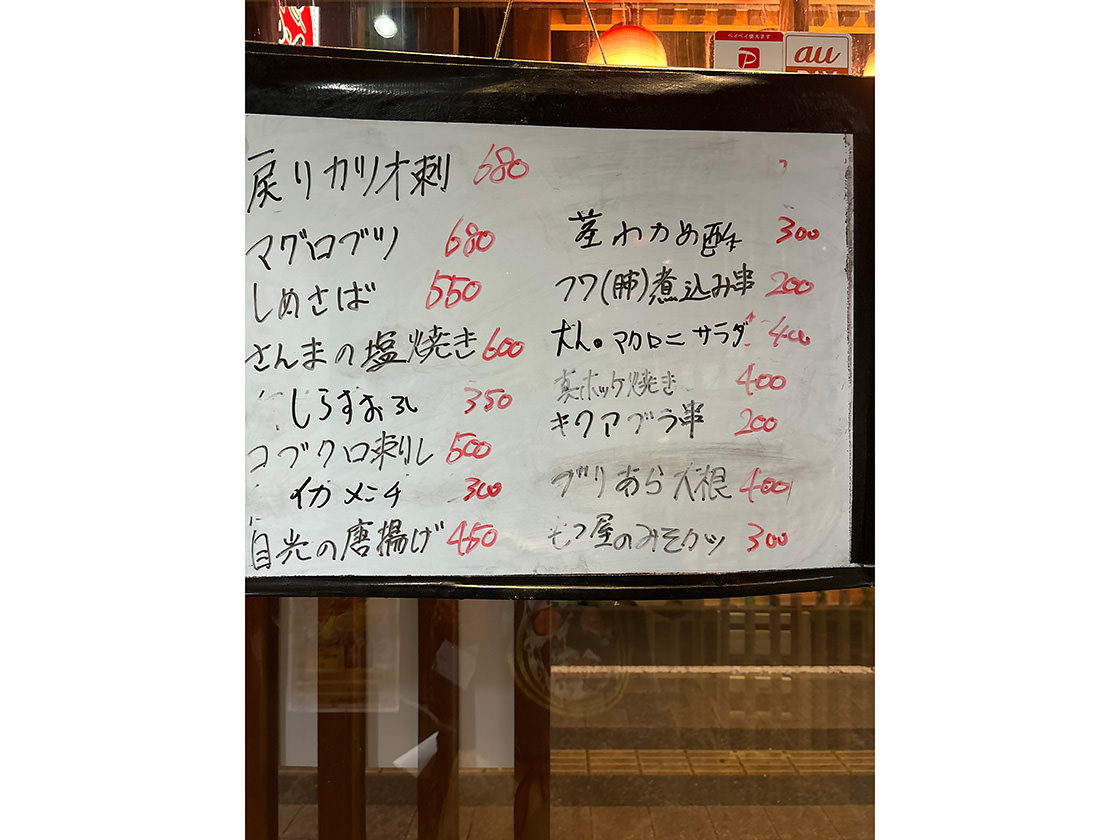 ペイペイ使えます
au
PAY
戻りカツオ刺 680
マグロブツ 680
しめさば 550
さんまの塩焼き 600
しらすおろし 350
コブクロ刺し 500
イカメンチ 300
目光の唐揚げ 450
茎わかめ酢 300
フワ(肺)煮込み串 200
大人のマカロニサラダ 400
真ホッケ焼き 400
キクアブラ串 200
ブリあら大根 400
もつ屋のみそカツ 300